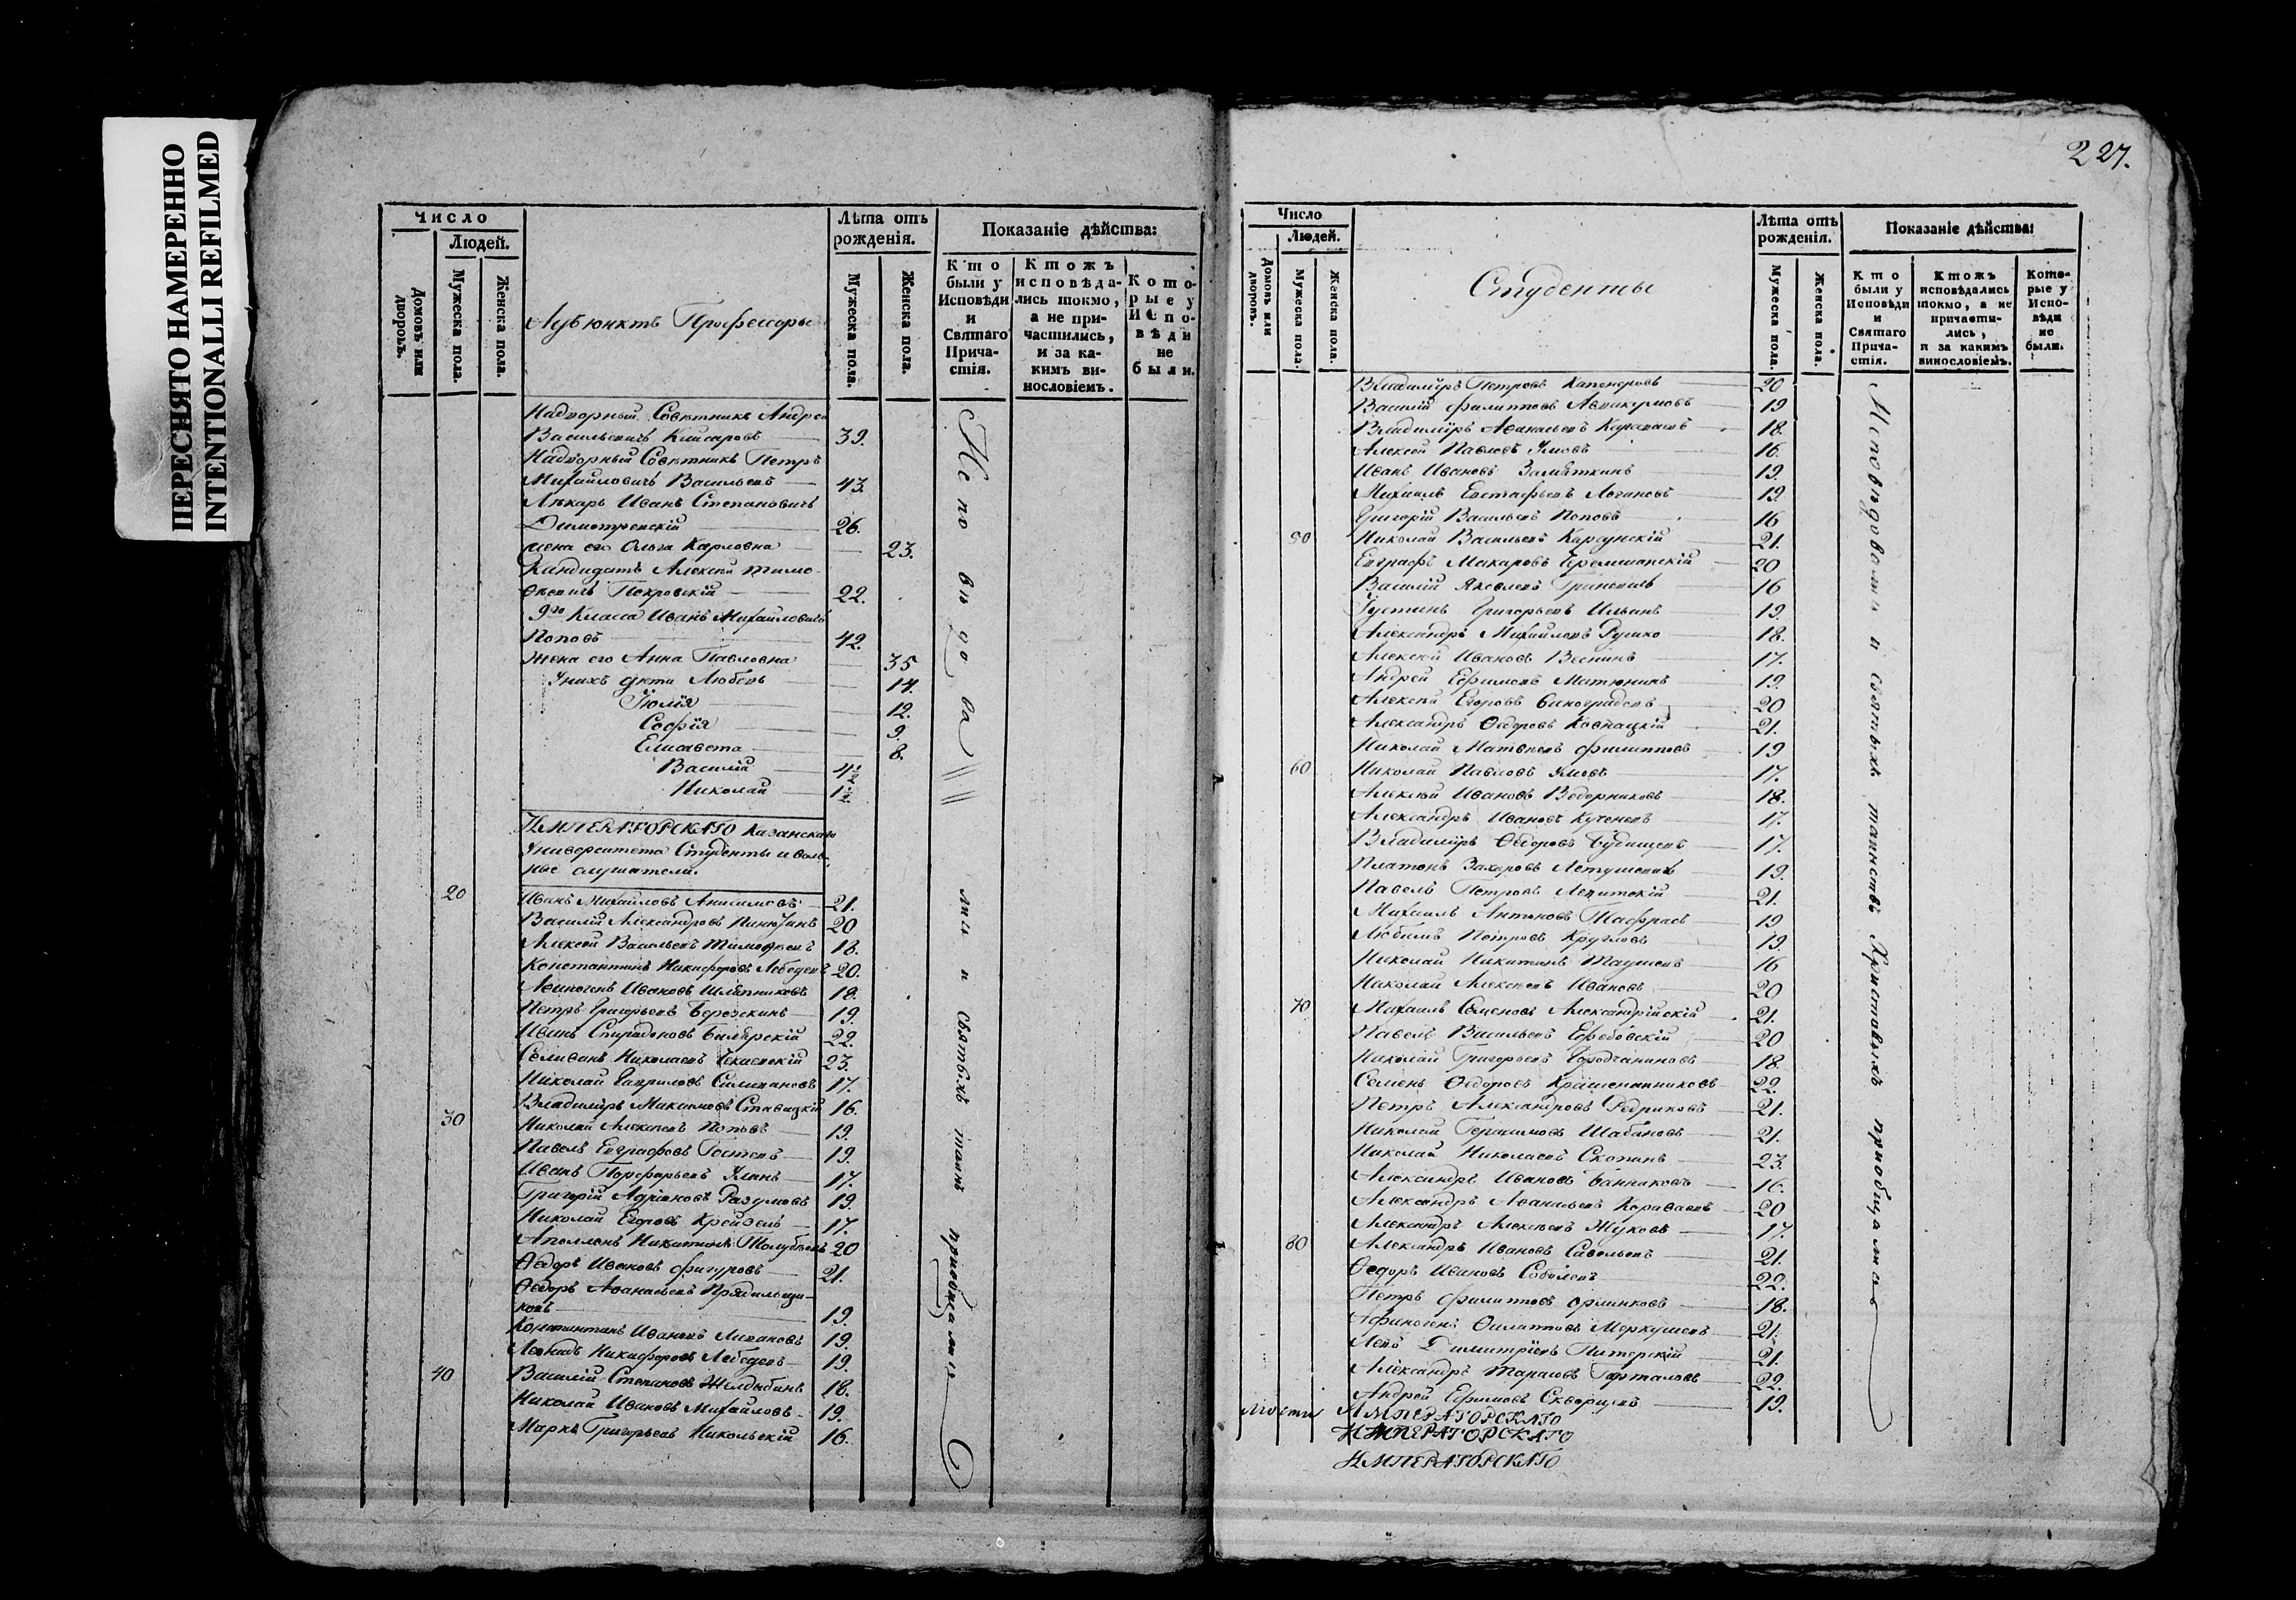 ПЕРЕСНЯТО НАМЕРЕННО
INTENTIONALLI REFILMED
227.
Число
Людей.
Домовъ или дворовъ.
Мужеска пола.
Женска пола.
Адъюнктъ Профессоры
Лѣта отъ рожденія.
Мужеска пола.
Женска пола.
Показаніе дѣйства:
Кто были у Исповѣди и Святаго Причастія.
Ктожъ исповѣдались токмо, а не причастились, и за каким ви- нословіемъ.
Которые у Исповѣди не были.
Надворный Совѣтникъ Андрей
Васильевичъ Кайсаровъ 39.
Надворный Совѣтникъ Петръ
Михайловичъ Васильевъ 43.
Лѣкарь Иванъ Степановичъ
Димитревскій 26.
жена его Ольга Карловна 23.
Кандидатъ Алексей Тимо-
ѳеевичъ Покровскій 22.
9го Класса Иванъ Михайловичъ
Поповъ 42.
Жена его Анна Павловна 35
Унихъ дѣти Любовь 14.
Юлія 12.
Софія 9.
Елисавета 8.
Василій 4½
Николай 1½
ИМПЕРАТОРСКАГО Казанскаго
Университета Студенты и воль-
ные слушатели.
20 Иванъ Михайловъ Анисимовъ 21.
Василій Александровъ 20
Алексей Васильевъ Тимофеевъ 18.
Константинъ Никифоровъ Лебедевъ 20.
Авиногенъ Ивановъ Шляпниковъ 18.
Петръ Григорьевъ Березкинъ 19.
Иванъ Спиридоновъ Билярскій 22.
Селиванъ Николаевъ 23.
Николай Гавриловъ Селивановъ 17.
Владимiръ Максимовъ Ставицкій 16.
30 Николай Алексеевъ Поповъ 19.
Павелъ Евграфовъ Гостевъ 19.
Иванъ Порфирьевъ Уланъ 17.
Григорій Адріановъ Разумовъ 19.
Николай Егоровъ Крейзель 17.
Аполлонъ Никитинъ Голубевъ 20
Ѳедоръ Ивановъ Фигуровъ 21.
Ѳедоръ Аѳанасьевъ Прядильщи-
ковъ 19.
Константинъ Ивановъ Липановъ 19.
Леонидъ Никифоровъ Лебедевъ 19.
40 Василій Степановъ Желдыбинъ 18.
Николай Ивановъ Михайловъ 19.
Маркъ Григорьевъ Никольскій 16.
Исповѣдовались и святыхъ таинъ приобщались
Число
Людей.
Домовъ или дворовъ.
Мужеска пола.
Женска пола.
Студенты
Лѣта отъ рожденія.
Мужеска пола.
Женска пола.
Показаніе дѣйства:
Кто были у Исповѣди и Святаго Причастія.
Ктожъ исповѣдались токмо, а не причастились, и за какимъ винословіемъ.
Которые у Исповѣди не были.
Владимiръ Петровъ 20
Василій Филипповъ Аввакумовъ 19
Владимiръ Аѳанасьевъ Караваевъ 18.
Алексей Павловъ Умовъ 16.
Иванъ Ивановъ Замяткинъ 19.
Михаилъ Евстафьевъ Логиновъ 19.
Григорій Васильевъ Поповъ 16
50 Николай Васильевъ Карсунскій 21.
Евграфъ Макаровъ Черемшанскій 20
Василій Яковлевъ 16
Iустинъ Григорьевъ Ильинъ 19.
Александръ Михайловъ Рушко 18.
Алексей Ивановъ Веснинъ 17.
Андрей Ефимовъ Матюнинъ 19.
Алексей Егоровъ Виноградовъ 20
Александръ Ѳедоровъ Ковнацкій 21.
Николай Матвеевъ Филипповъ 19
60 Николай Павловъ Умовъ 17.
Алексей Ивановъ Ведерниковъ 18.
Александръ Ивановъ Кученевъ 17.
Владимiръ Ѳедоровъ Будищевъ 17.
Платонъ Захаровъ Летушевичъ 19.
Павелъ Петровъ Левитскій 21.
Михаилъ Антоновъ 19
Любимъ Петровъ Кругловъ 19.
Николай Никитинъ Таушевъ 16
Николай Алексеевъ Ивановъ 20
70 Михаилъ Семеновъ Александрійскій 21.
Павелъ Васильевъ 20
Николай Григорьевъ Городчаниновъ 18.
Семенъ Ѳедоровъ Крашенинниковъ 22.
Петръ Александровъ Редриковъ 21.
Николай Герасимовъ Шабановъ 21.
Николай Николаевъ Скопинъ 23.
Александръ Ивановъ Банниковъ 16.
Александръ Аѳанасьевъ Караваевъ 20
Александръ Алексеевъ Жуковъ 17.
80 Александръ Ивановъ Савельевъ 21.
Ѳедоръ Ивановъ Соболевъ 22.
Петръ Филипповъ Орлинковъ 18.
Афиногенъ Филипповъ Меркушевъ 21.
Левъ Димитріевъ Питерскій 21.
Александръ Тарасовъ Горталовъ 22.
Андрей Ефимовъ Скворцовъ 19.
Исповѣдовались и святыхъ таинствъ Христовыхъ приобщались
ИМПЕРАТОРСКАГО
ИМПЕРАТОРСКАГО
ИМПЕРАТОРСКАГО